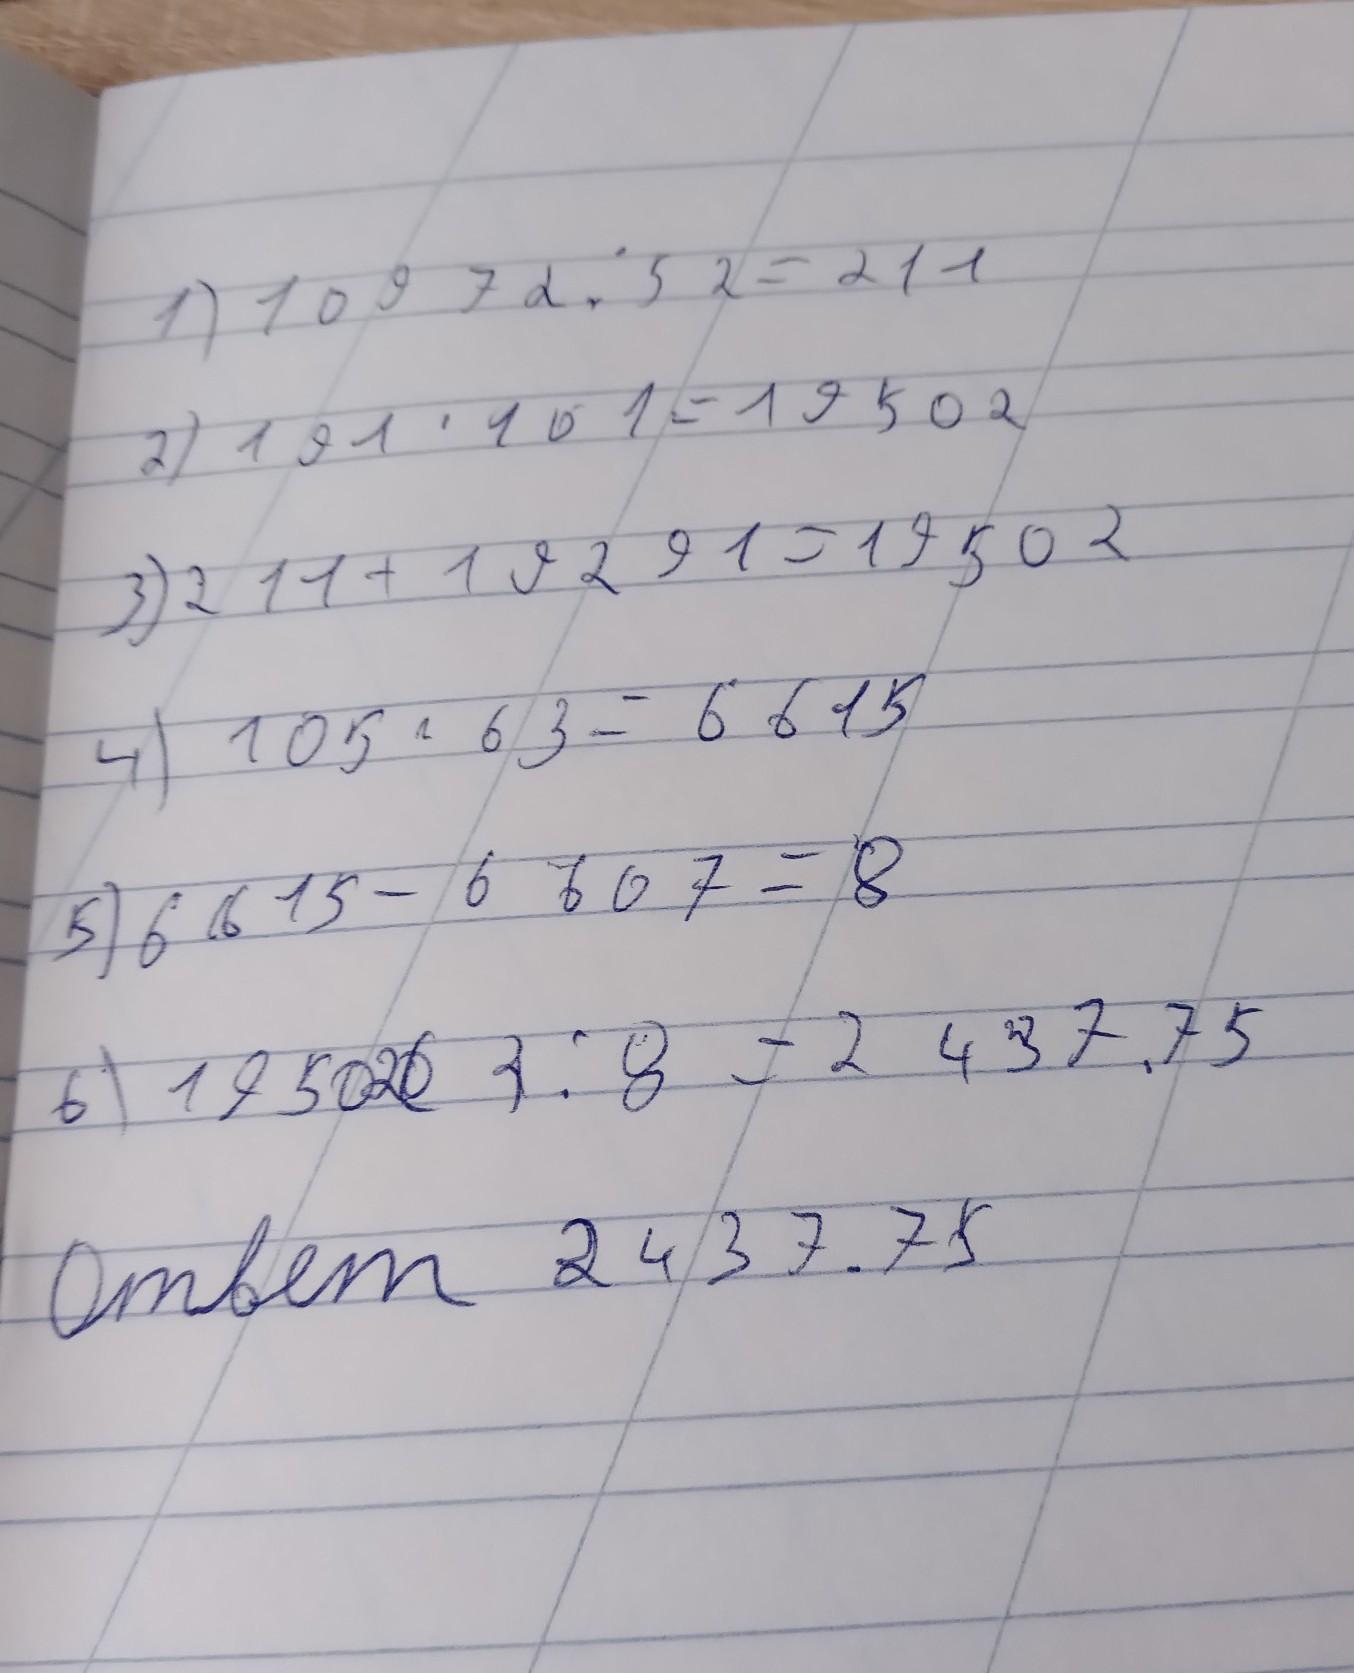 1) 10972 : 52 = 211
2) 191 · 101 = 19502
3) 211 + 19291 = 19502
4) 105 · 63 = 6615
5) 6615 - 6607 = 8
6) 19502 : 8 = 2437.75
Ответ 2437.75